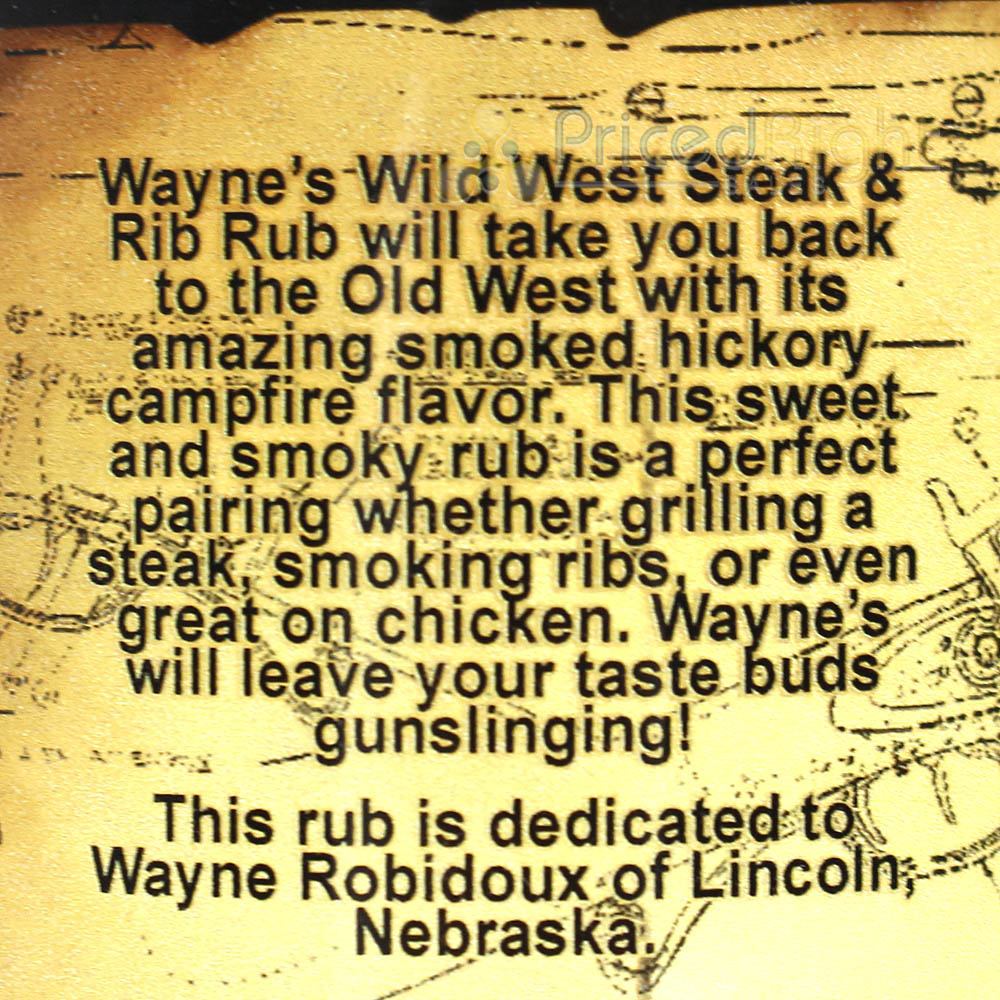 PricedRight
Wayne's Wild West Steak &
Rib Rub will take you back
to the Old West with its
amazing smoked hickory
campfire flavor. This sweet
and smoky rub is a perfect
pairing whether grilling a
steak, smoking ribs, or even
great on chicken. Wayne's
will leave your taste buds
gunslinging!
This rub is dedicated to
Wayne Robidoux of Lincoln,
Nebraska.